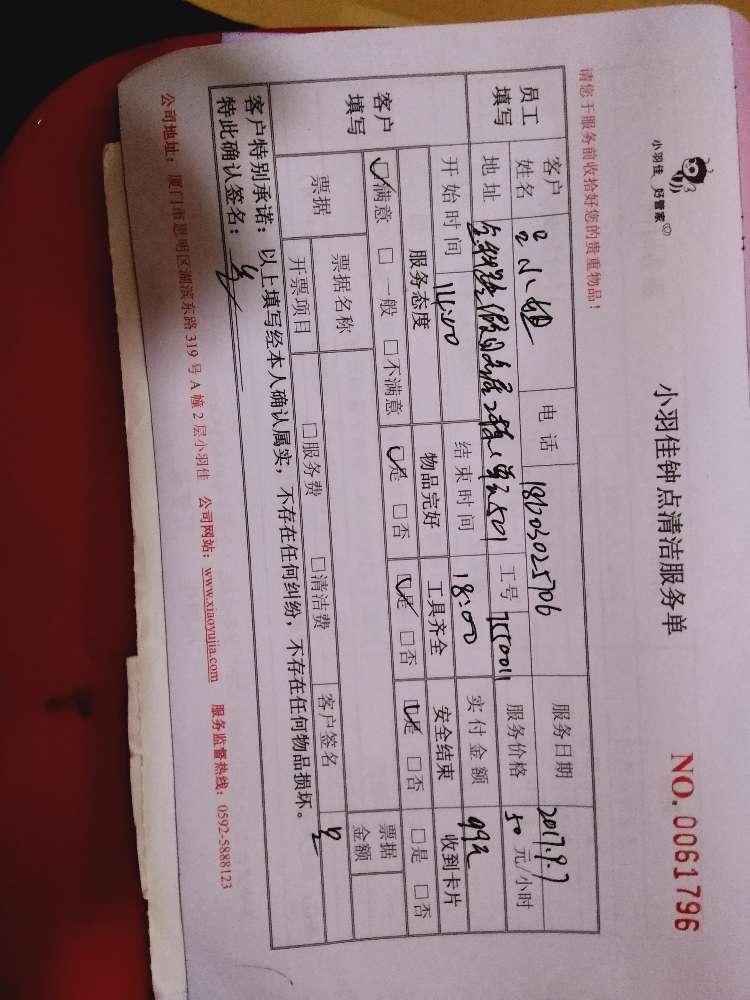 小羽佳 好管家
小羽佳钟点清洁服务单
NO. 0061796
请您于服务前收拾好您的贵重物品！
员工填写
客户姓名 小姐 电话 18603025706 服务日期 2017.9.7
地址 501 工号 服务价格 50 元/小时
开始时间 14:00 结束时间 18:00 实付金额 99元
客户填写
服务态度 物品完好 工具齐全 安全结束 收到卡片
☑满意 □一般 □不满意 ☑是 □否 ☑是 □否 ☑是 □否 □是 □否
票据 票据名称 票据金额
开票项目 □服务费 □清洁费 客户签名
客户特别承诺：以上填写经本人确认属实，不存在任何纠纷，不存在任何物品损坏。
特此确认签名：
公司地址：厦门市思明区湖滨东路 319 号 A 幢 2 层小羽佳 公司网站：www.xiaoyujia.com 服务监督热线：0592-5888123